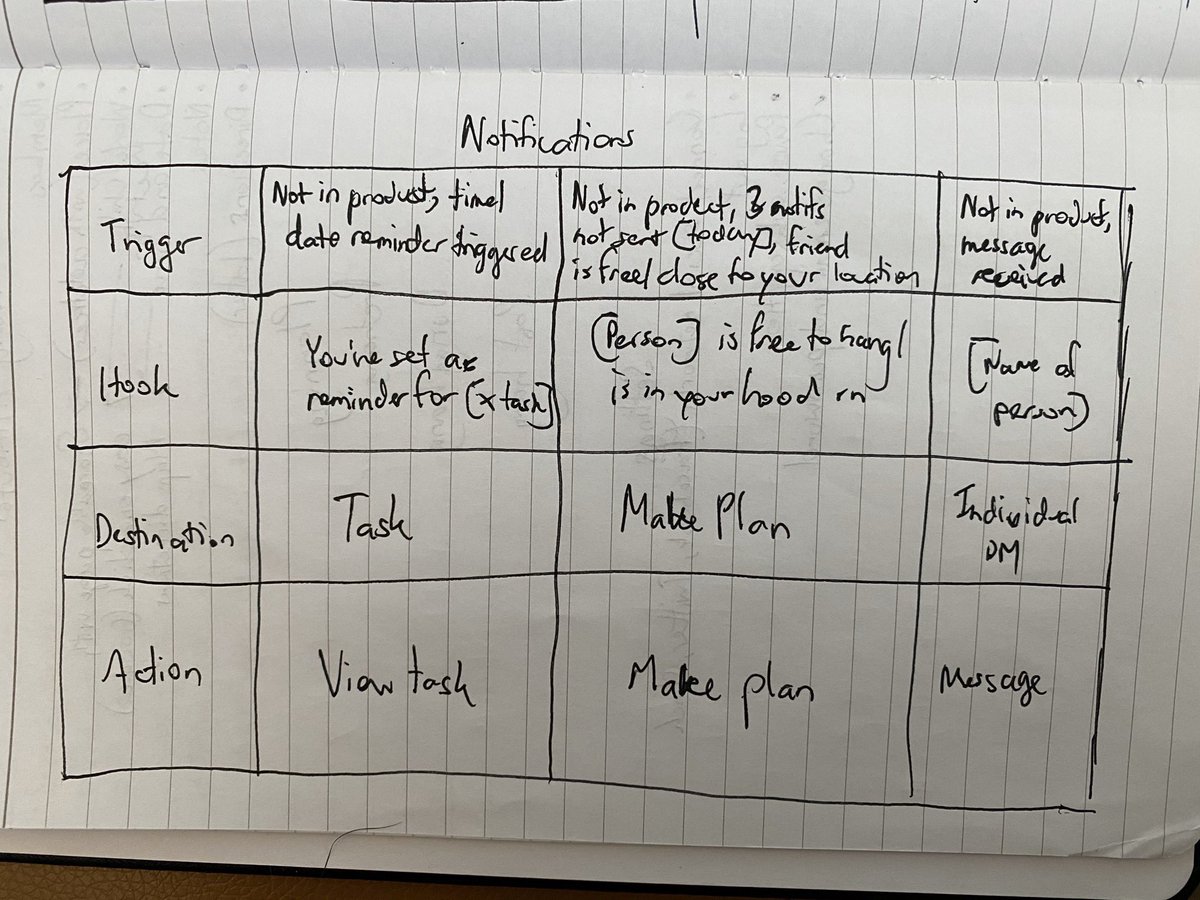 Notifications
Trigger
Not in product, time/
date reminder triggered
Not in product, 3 notifs
not sent [today], friend
is free/close to your location
Not in product,
message
received
Hook
You've set a
reminder for [x task]
[Person] is free to hang/
is in your hood rn
[Name of
person]
Destination
Task
Make Plan
Individual
DM
Action
View task
Make plan
Message